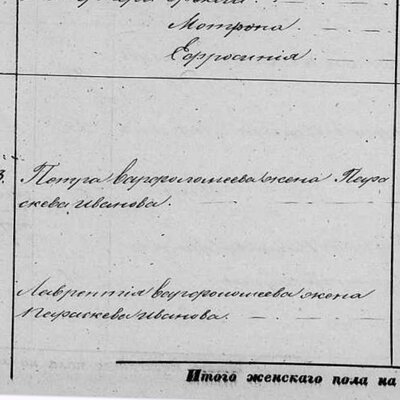 Мотрона
Ефросинія.
3. Петра Варфоломеева жена Пара
скева Иванова.
Лаврентія Варфоломеева жена
Параскева Иванова.
Итого женскаго пола на